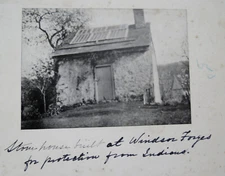 Stone house built at Windsor Forges
for protection from Indians.